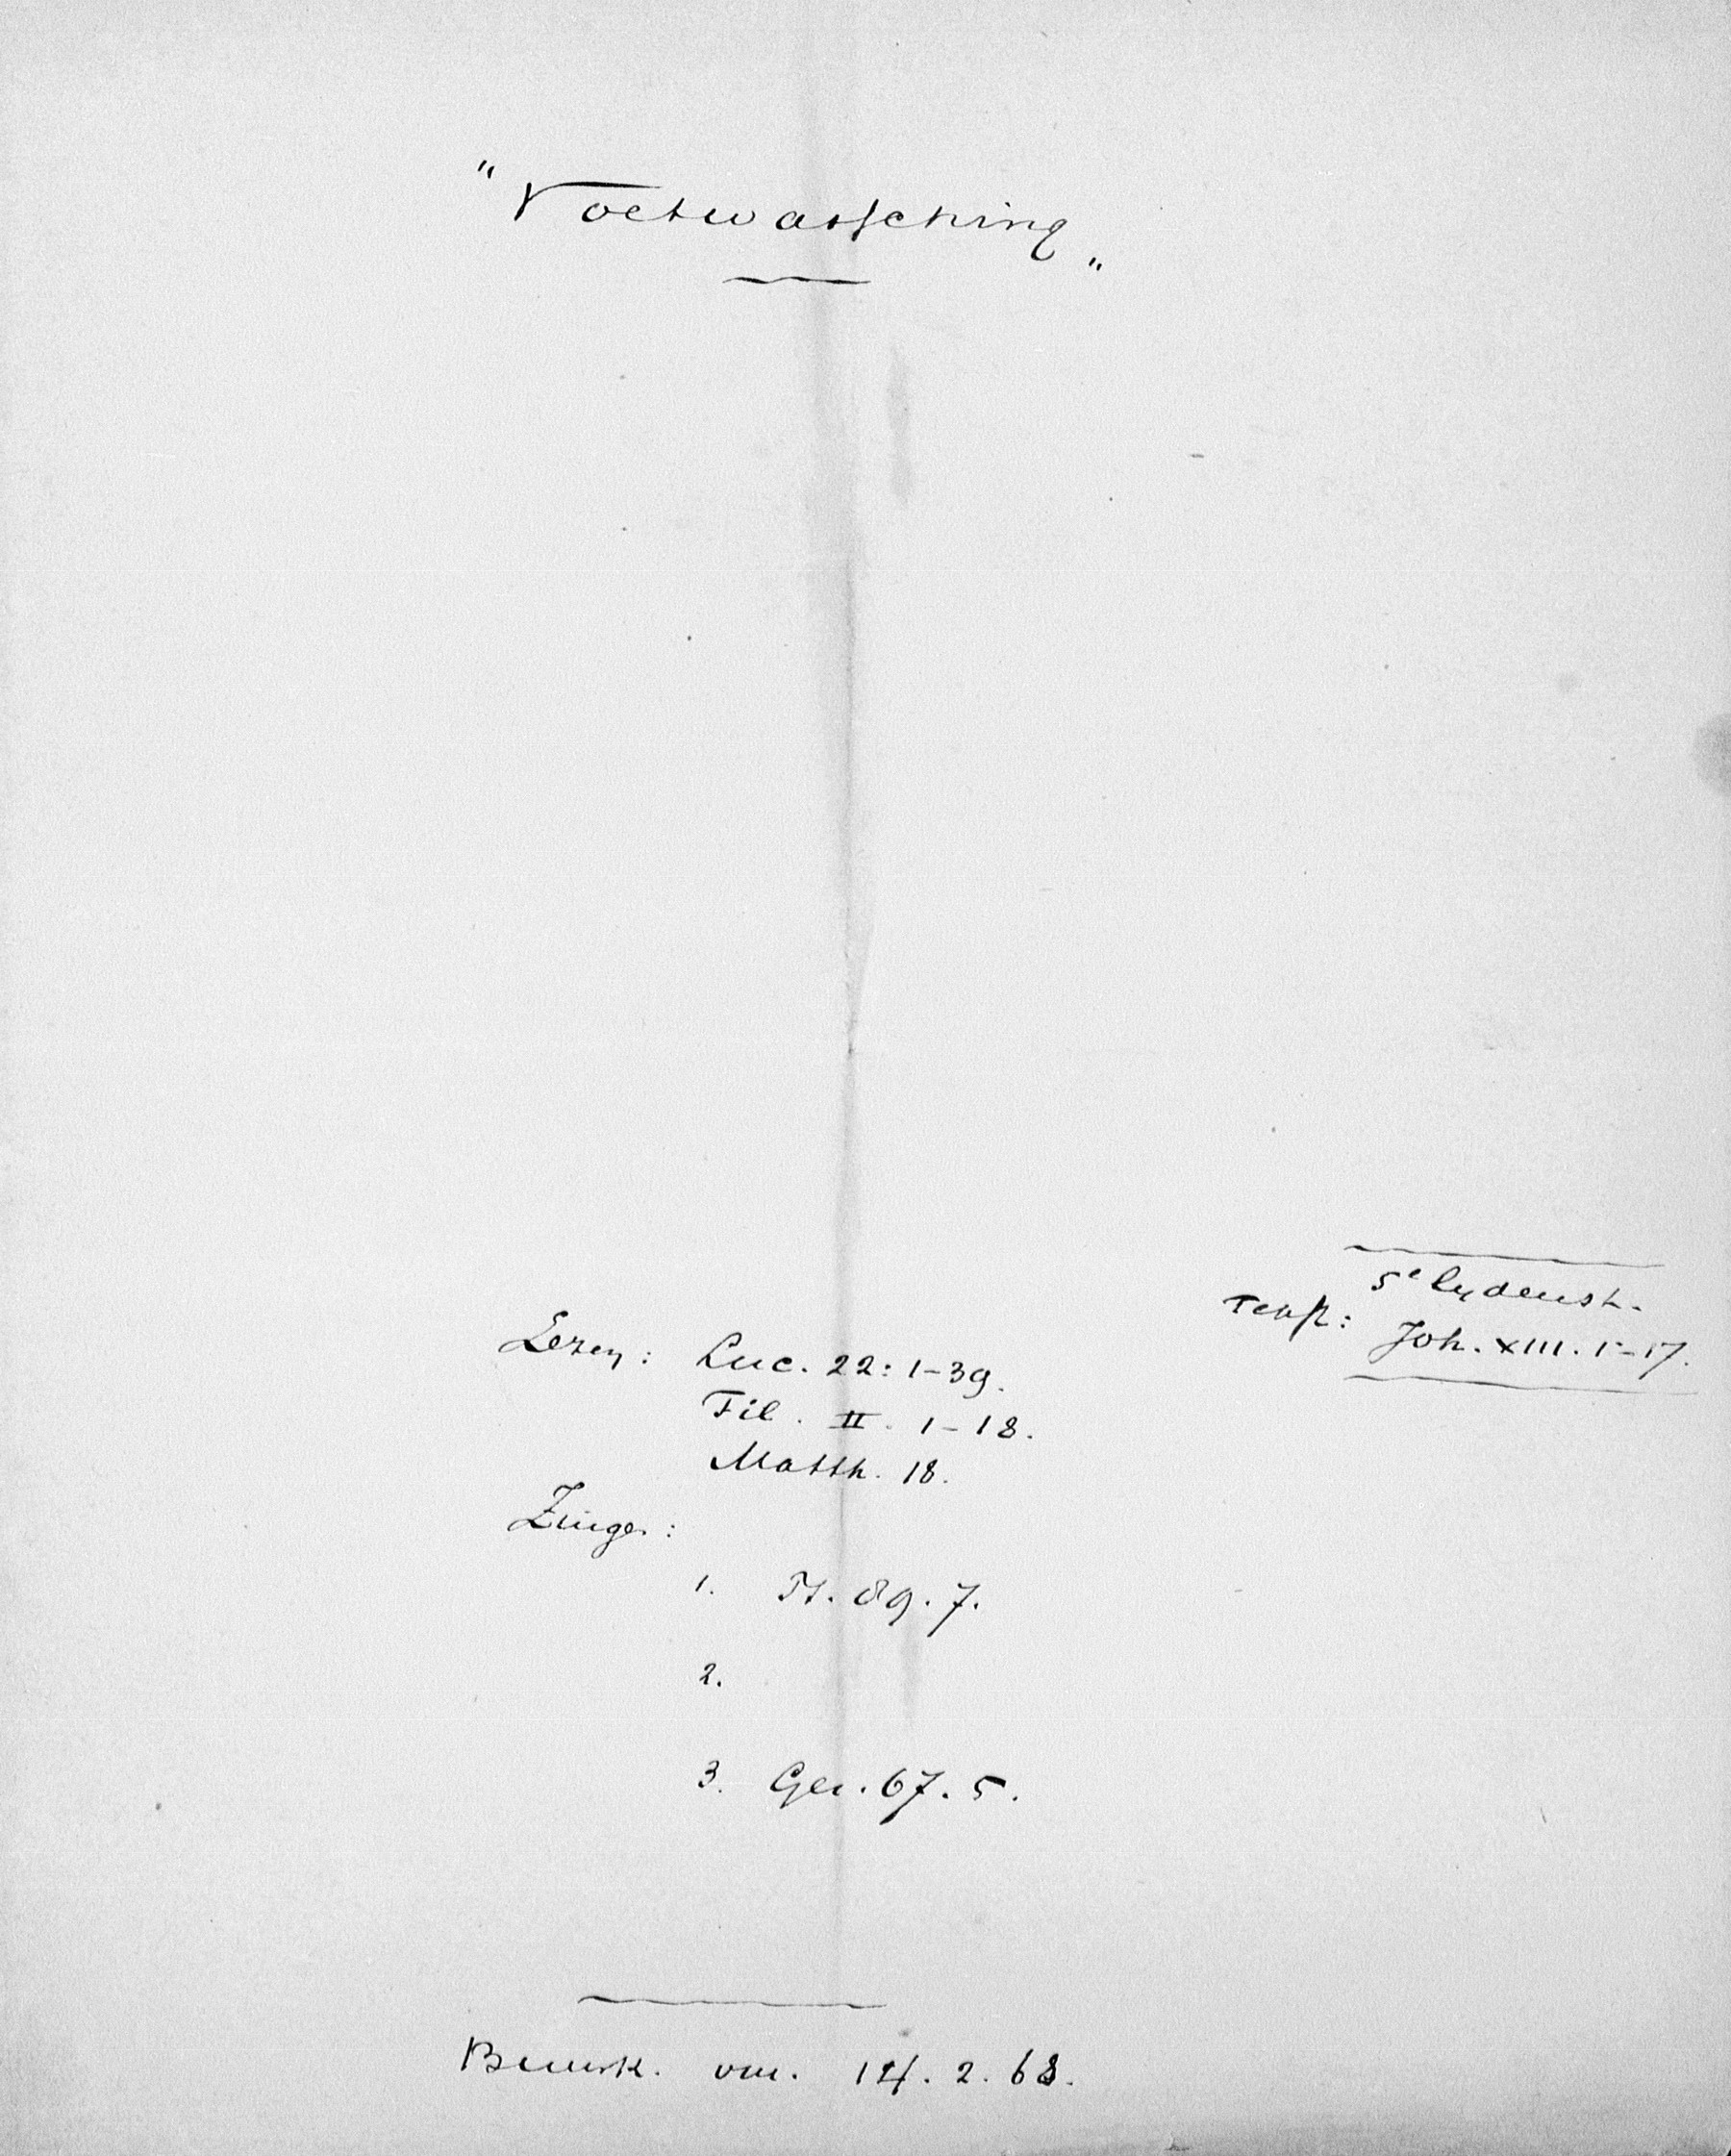 "Voetwassching"
5e lydenst.
Text: Joh. XIII. 1-17.
Lezen: Luc. 22: 1-39.
Fil. II. 1-18.
Matth. 18.
Zinge:
1. Ps. 89. 7.
2.
3. Gez. 67. 5.
vm. 14. 2. 68.